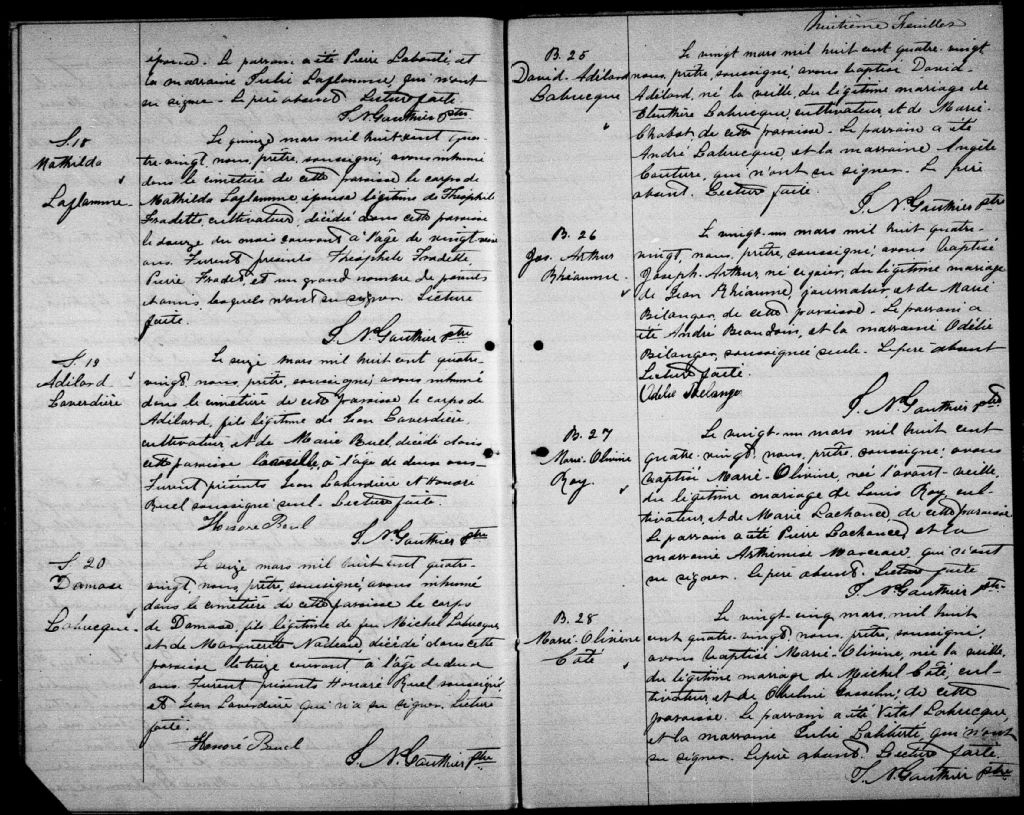 épouse. Le parrain a été Pierre Laberté, et
la marraine Julie Laflamme qui n'ont
su signer. Le père absent. Lecture faite.
J. N. Gauthier Ptre
S. 18
Mathilda
Laflamme
Le quinze mars mil huit cent qua-
tre-vingt, nous, prêtre, soussigné, avons inhumé
dans le cimetière de cette paroisse le corps de
Mathilda Laflamme épouse légitime de Théophile
Fradette, cultivateur, décédée dans cette paroisse
le douze du mois courant à l'âge de vingt
ans. Furent présents Théophile Fradette,
Pierre Fradet, et un grand nombre de parents
et amis lesquels n'ont su signer. Lecture
faite.
J. N. Gauthier ptre
S. 19
Adélard
Laverdière
Le seize mars mil huit cent quatre-
vingt, nous, prêtre, soussigné, avons inhumé
dans le cimetière de cette paroisse le corps de
Adélard, fils légitime de Léon Laverdière,
cultivateur et de Marie Ruel, décédé dans
cette paroisse la veille, à l'âge de deux ans.
Furent présents Léon Laverdière et Honoré
Ruel soussigné seul. Lecture faite.
Honoré Ruel
J. N. Gauthier ptre
S. 20
Damase
Labrecque
Le seize mars mil huit cent quatre-
vingt, nous, prêtre, soussigné, avons inhumé
dans le cimetière de cette paroisse le corps
de Damase, fils légitime de feu Michel Labrecque
et de Marguerite Nadeau, décédé dans cette
paroisse le treize courant à l'âge de deux
ans. Furent présents Honoré Ruel soussigné
et Léon Laverdière qui n'a su signer. Lecture
faite.
Honoré Ruel
J. N. Gauthier ptre
Huitième Feuillet
B. 25
David-Adélard
Labrecque
Le vingt mars mil huit cent quatre-vingt
nous, prêtre, soussigné, avons baptisé David-
Adélard, né la veille, du légitime mariage de
Eleuthère Labrecque, cultivateur, et de Marie
Chabot de cette paroisse. Le parrain a été
André Labrecque, et la marraine Angèle
Couture, qui n'ont su signer. Le père
absent. Lecture faite.
J. N. Gauthier ptre
B. 26
Jos. Arthur
Rhéaume
Le vingt-un mars mil huit cent quatre-
vingt, nous, prêtre, soussigné, avons baptisé
Joseph-Arthur, né ce jour, du légitime mariage
de Jean Rhéaume, journalier, et de Marie
Bélanger, de cette paroisse. Le parrain a
été André Beaudoin, et la marraine Odélie
Bélanger, soussignée seule. Le père absent
Lecture faite.
Odélie Bélanger
J. N. Gauthier ptre
B. 27
Marie-Olivine
Roy
Le vingt-un mars mil huit cent
quatre-vingt, nous, prêtre, soussigné, avons
baptisé Marie-Olivine, née l'avant-veille,
du légitime mariage de Louis Roy, cul-
tivateur, et de Marie Lachance, de cette paroisse.
Le parrain a été Pierre Lachance, et la
marraine Arthémise Marceau, qui n'ont
su signer. Le père absent. Lecture faite
J. N. Gauthier ptre
B. 28
Marie-Olivine
Côté
Le vingt-cinq mars, mil huit
cent quatre-vingt, nous, prêtre, soussigné,
avons baptisé Marie-Olivine, née la veille,
du légitime mariage de Michel Côté, cul-
tivateur, et de Gosselin, de cette
paroisse. Le parrain a été Vital Labrecque,
et la marraine Julie Laliberté, qui n'ont
su signer. Le père absent. Lecture faite.
J. N. Gauthier ptre